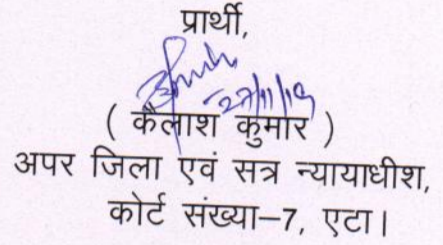 प्रार्थी,
27/11/19
( कैलाश कुमार )
अपर जिला एवं सत्र न्यायाधीश,
कोर्ट संख्या–7, एटा।